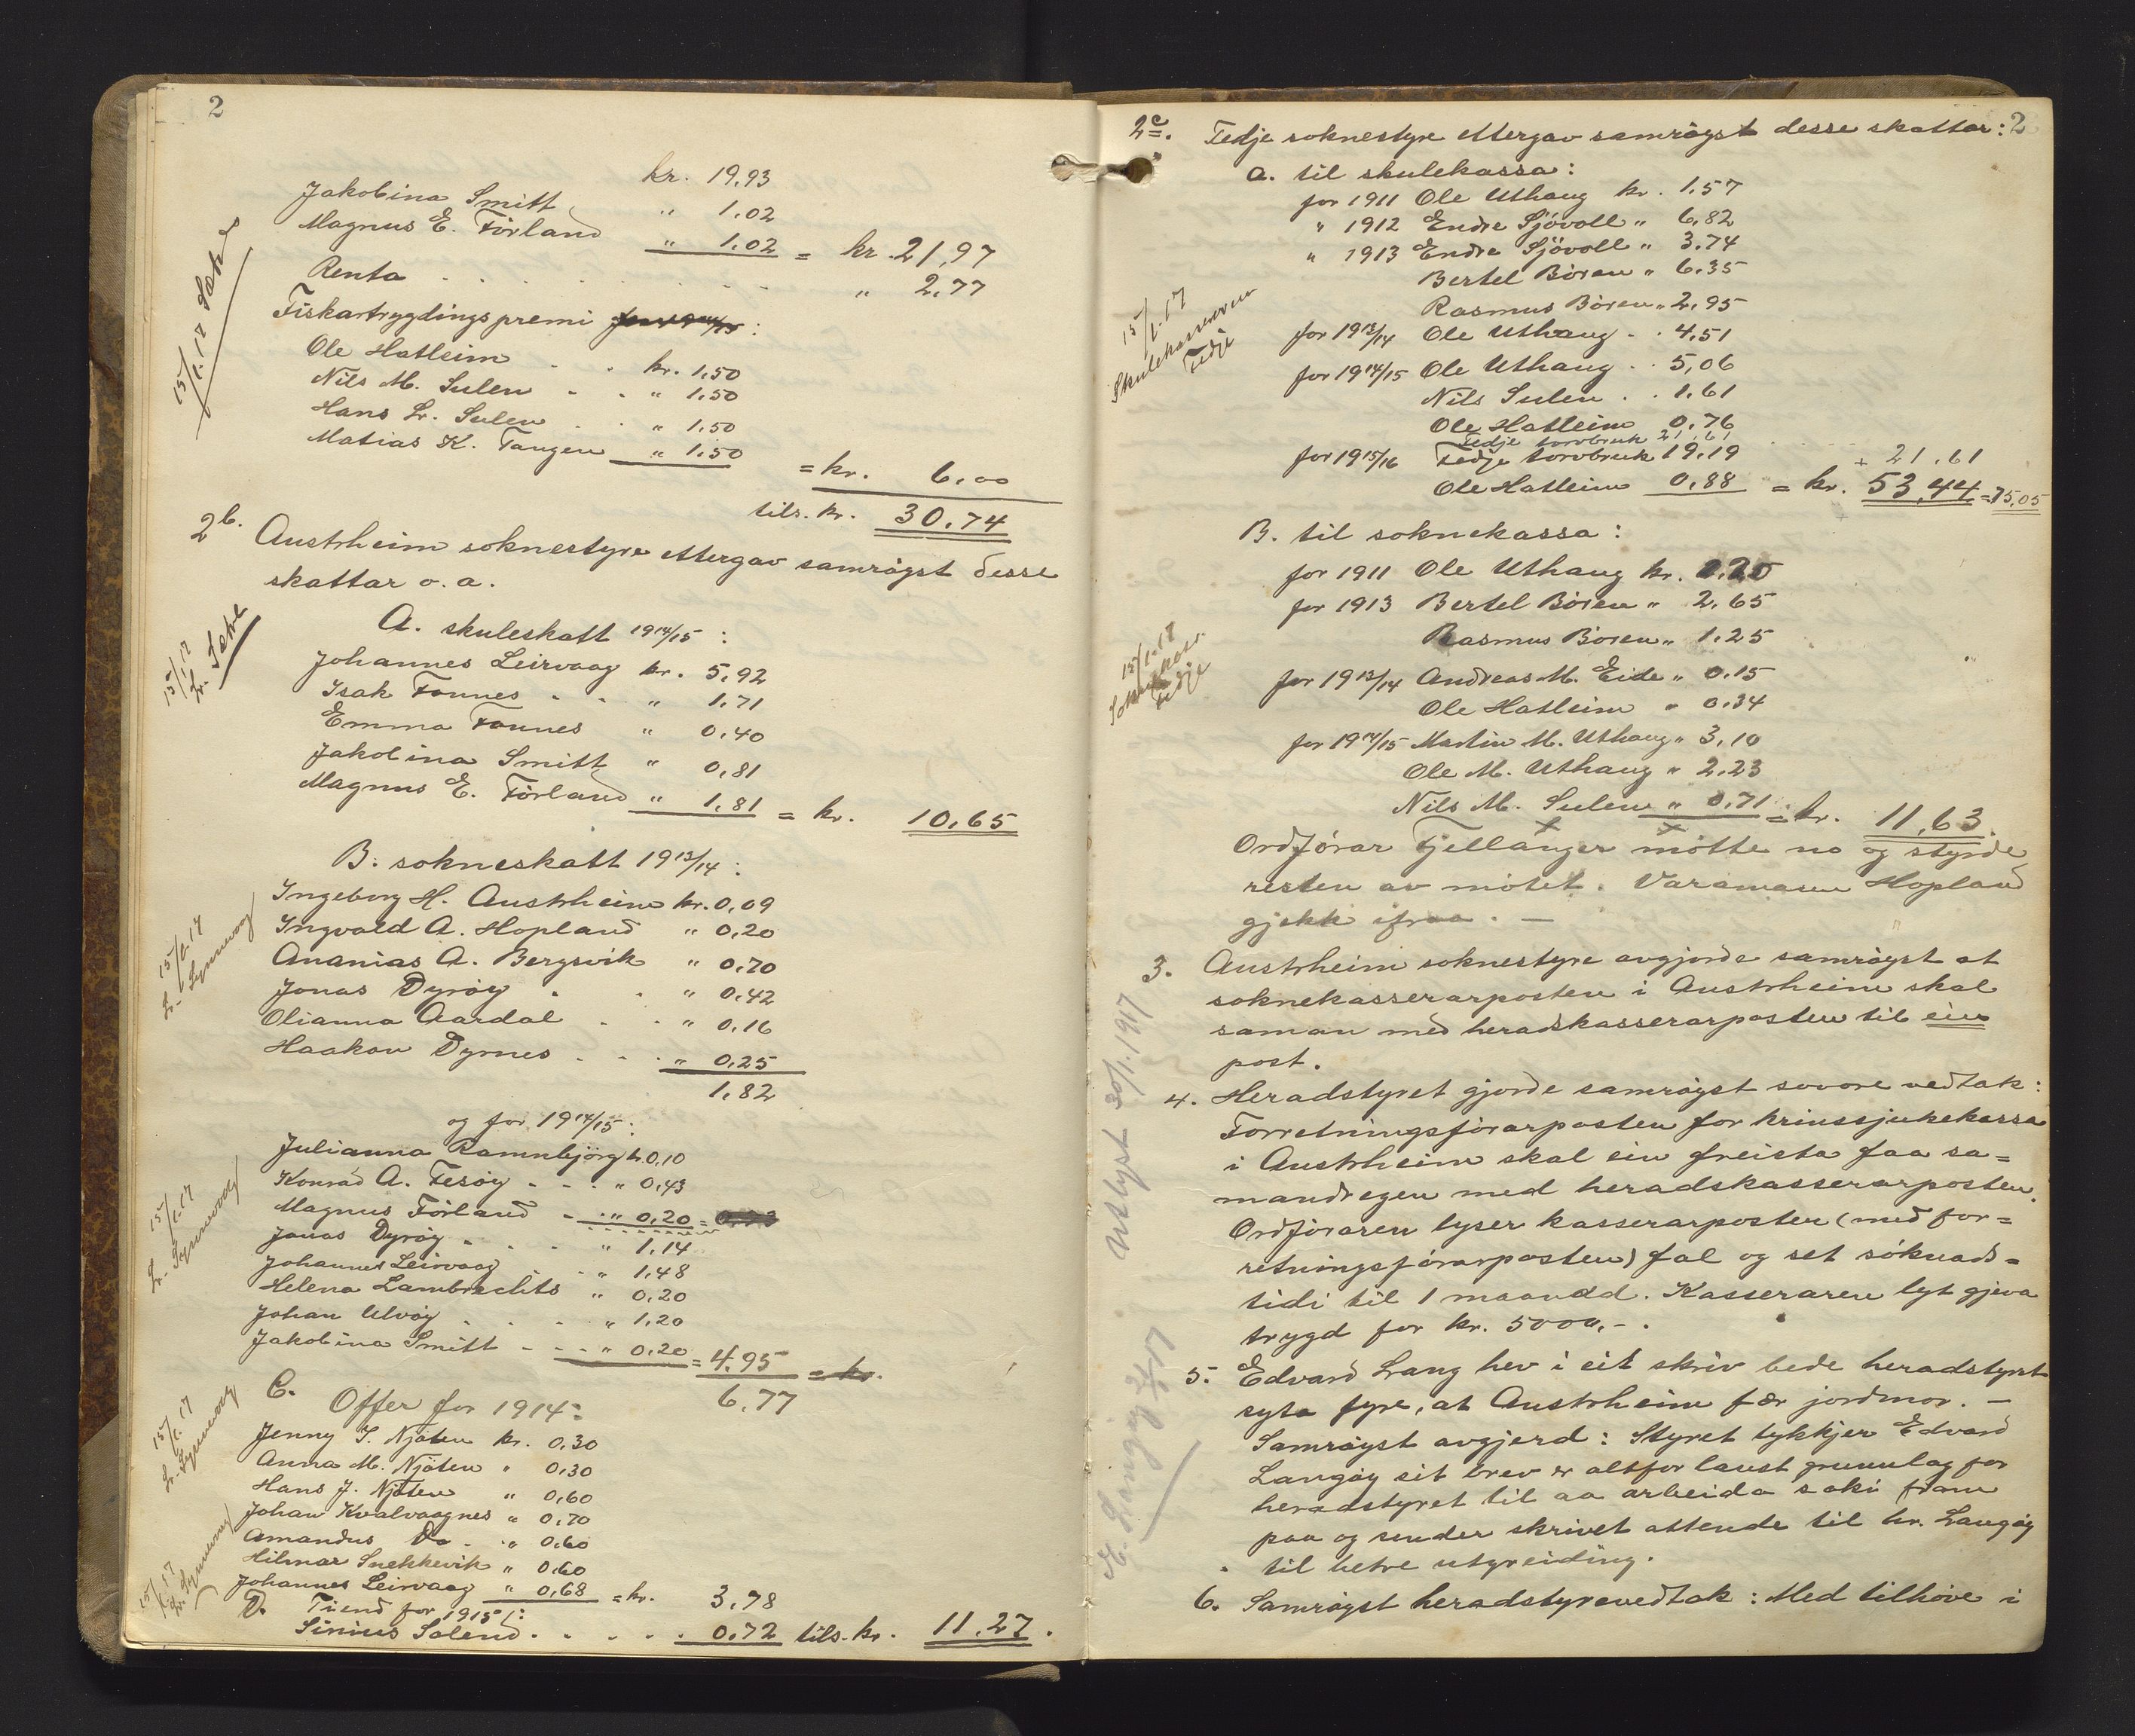 2
kr. 19,93
Jakobina Smitt " 1,02
Magnus E. Förland " 1,02 = kr. 21,97
Renta . . . . . . " 2,77
Fiskartrygdingspremi for 1914/15 :
Ole Hatleim . . kr. 1,50
Nils M. Sulen . . " 1,50
Hans Sulen . . " 1,50
Matias K. Tangen " 1,50
= kr. 6,00
tils. kr. 30,74
15/1.17
2b. Austrheim soknestyre ettergav samröyst desse
skattar o. a.
A. skuleskatt 1914/15 :
Johannes Leirvaag kr. 5,92
Isak Fonnes . . " 1,71
Emma Fonnes " 0,40
Jakobina Smitt " 0,81
Magnus E. Förland " 1,81 = kr. 10,65
15/1.17
B. sokneskatt 1913/14 :
Ingeborg H. Austrheim kr. 0,09
Ingvald A. Hopland " 0,20
Ananias A. Bergsvik " 0,70
Jonas Dyröy . . " 0,42
Olianna Aardal . . " 0,16
Haakon Dyrnes . . . " 0,25
1,82
15/1.17
og for 1914/15 :
Julianna Ramnbjörg kr. 0,10
Konrad A. Fesöy . . . " 0,43
Magnus Förland . . " 0,20 =
Jonas Dyröy . . . " 1,14
Johannes Leirvaag . . " 1,48
Helena Lambrechts " 0,20
Johan Ulvöy . . . . " 1,20
Jakobina Smitt - - - " 0,20 = 4,95 = kr.
6,77
15/1.17
C. Offer for 1914:
Jenny I. Njöten kr. 0,30
Anna M. Njöten " 0,30
Hans J. Njöten " 0,60
Johan Kvalvaagnes " 0,70
Amandus Do . . " 0,60
Hilmar Snekkevik " 0,60
Johannes Leirvaag " 0,68 = kr. 3,78
15/1.17
D. Tiend for 1915/:
Sinius Solend . . . . . 0,72 tils. kr. 11,27.
15/1.17
2
2c. Fedje soknestyre ettergav samröyst desse skattar:
a. til skulekassa:
for 1911 Ole Uthaug kr. 1,57
" 1912 Endre Sjövoll " 6,82
" 1913 Endre Sjövoll " 3,74
Bertel Bören " 6,35
Rasmus Bören " 2,95
for 1913/14 Ole Uthaug . . 4,51
for 1914/15 Ole Uthaug . . 5,06
Nils Sulen . . 1,61
Ole Hatleim 0,76
Fedje torvbruk 21,61
+ 21,61
for 1915/16 Fedje torvbruk 19,19
Ole Hatleim 0,88 = kr. 53,44 = 75,05
15/1.17
Skulekasseraren
Fedje
B. til soknekassa :
for 1911 Ole Uthaug kr. 1,20
for 1913 Bertel Bören " 2,65
Rasmus Bören " 1,25
for 1913/14 Andreas M. Eide " 0,15
Ole Hatleim " 0,34
for 1914/15 Martin M. Uthaug " 3,10
Ole M. Uthaug " 2,23
Nils M. Sulen " 0,71 = kr. 11,63.
15/1.17
Fedje
Ordförar Fjellanger mötte no og styrde
resten av mötet. Varamann Hopland
gjekk ifraa. —
3. Austrheim soknestyre avgjorde samröyst at
soknekasserarposten i Austrheim skal
saman med heradskasserarposten til ein
post.
4. Heradstyret gjorde samröyst sovore vedtak:
Forretningsförarposten for krinssjukekassa
i Austrheim skal ein freista faa sa=
mandregen med heradskasserarposten.
Ordföraren lyser kasserarposten (med for=
retningsförarposten) fal og set söknads=
tidi til 1 maanad. Kasseraren lyt gjeva
trygd for kr. 5000,-.
Utlyst 30/1.1917
5. Edvard Lang hev i eit skriv bede heradstyret
syta fyre, at Austrheim fær jordmor. —
Samröyst avgjerd: Styret tykkjer Edvard
Langöy sit brev er altfor laust grunnlag for
heradstyret til aa arbeida saki fram
paa og sender skrivet attende til hr. Langöy
til betre utgreiding.
6. Samröyst heradstyrevedtak: Med tilhöve i